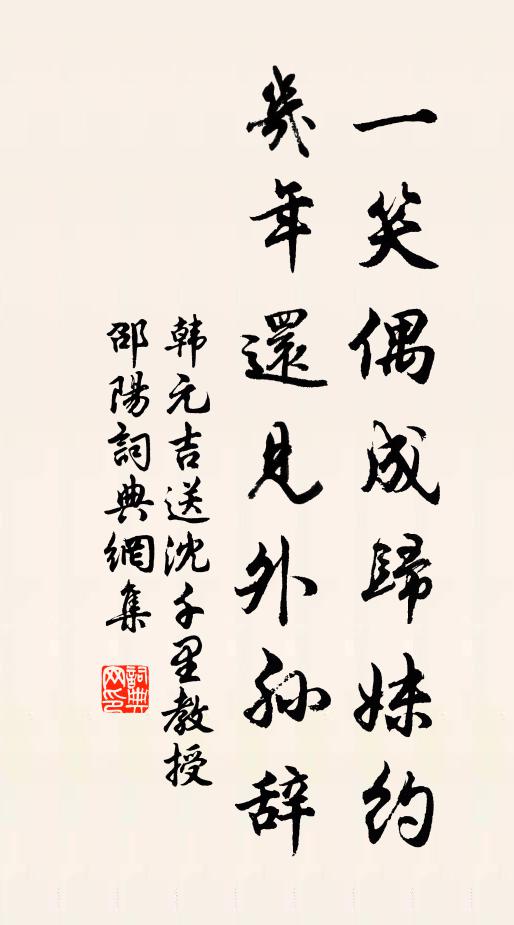 一笑偶成歸妹約
幾年還見外孙辞
韩元吉送沈千里教授
邵陽詞典網集
詞典
网印